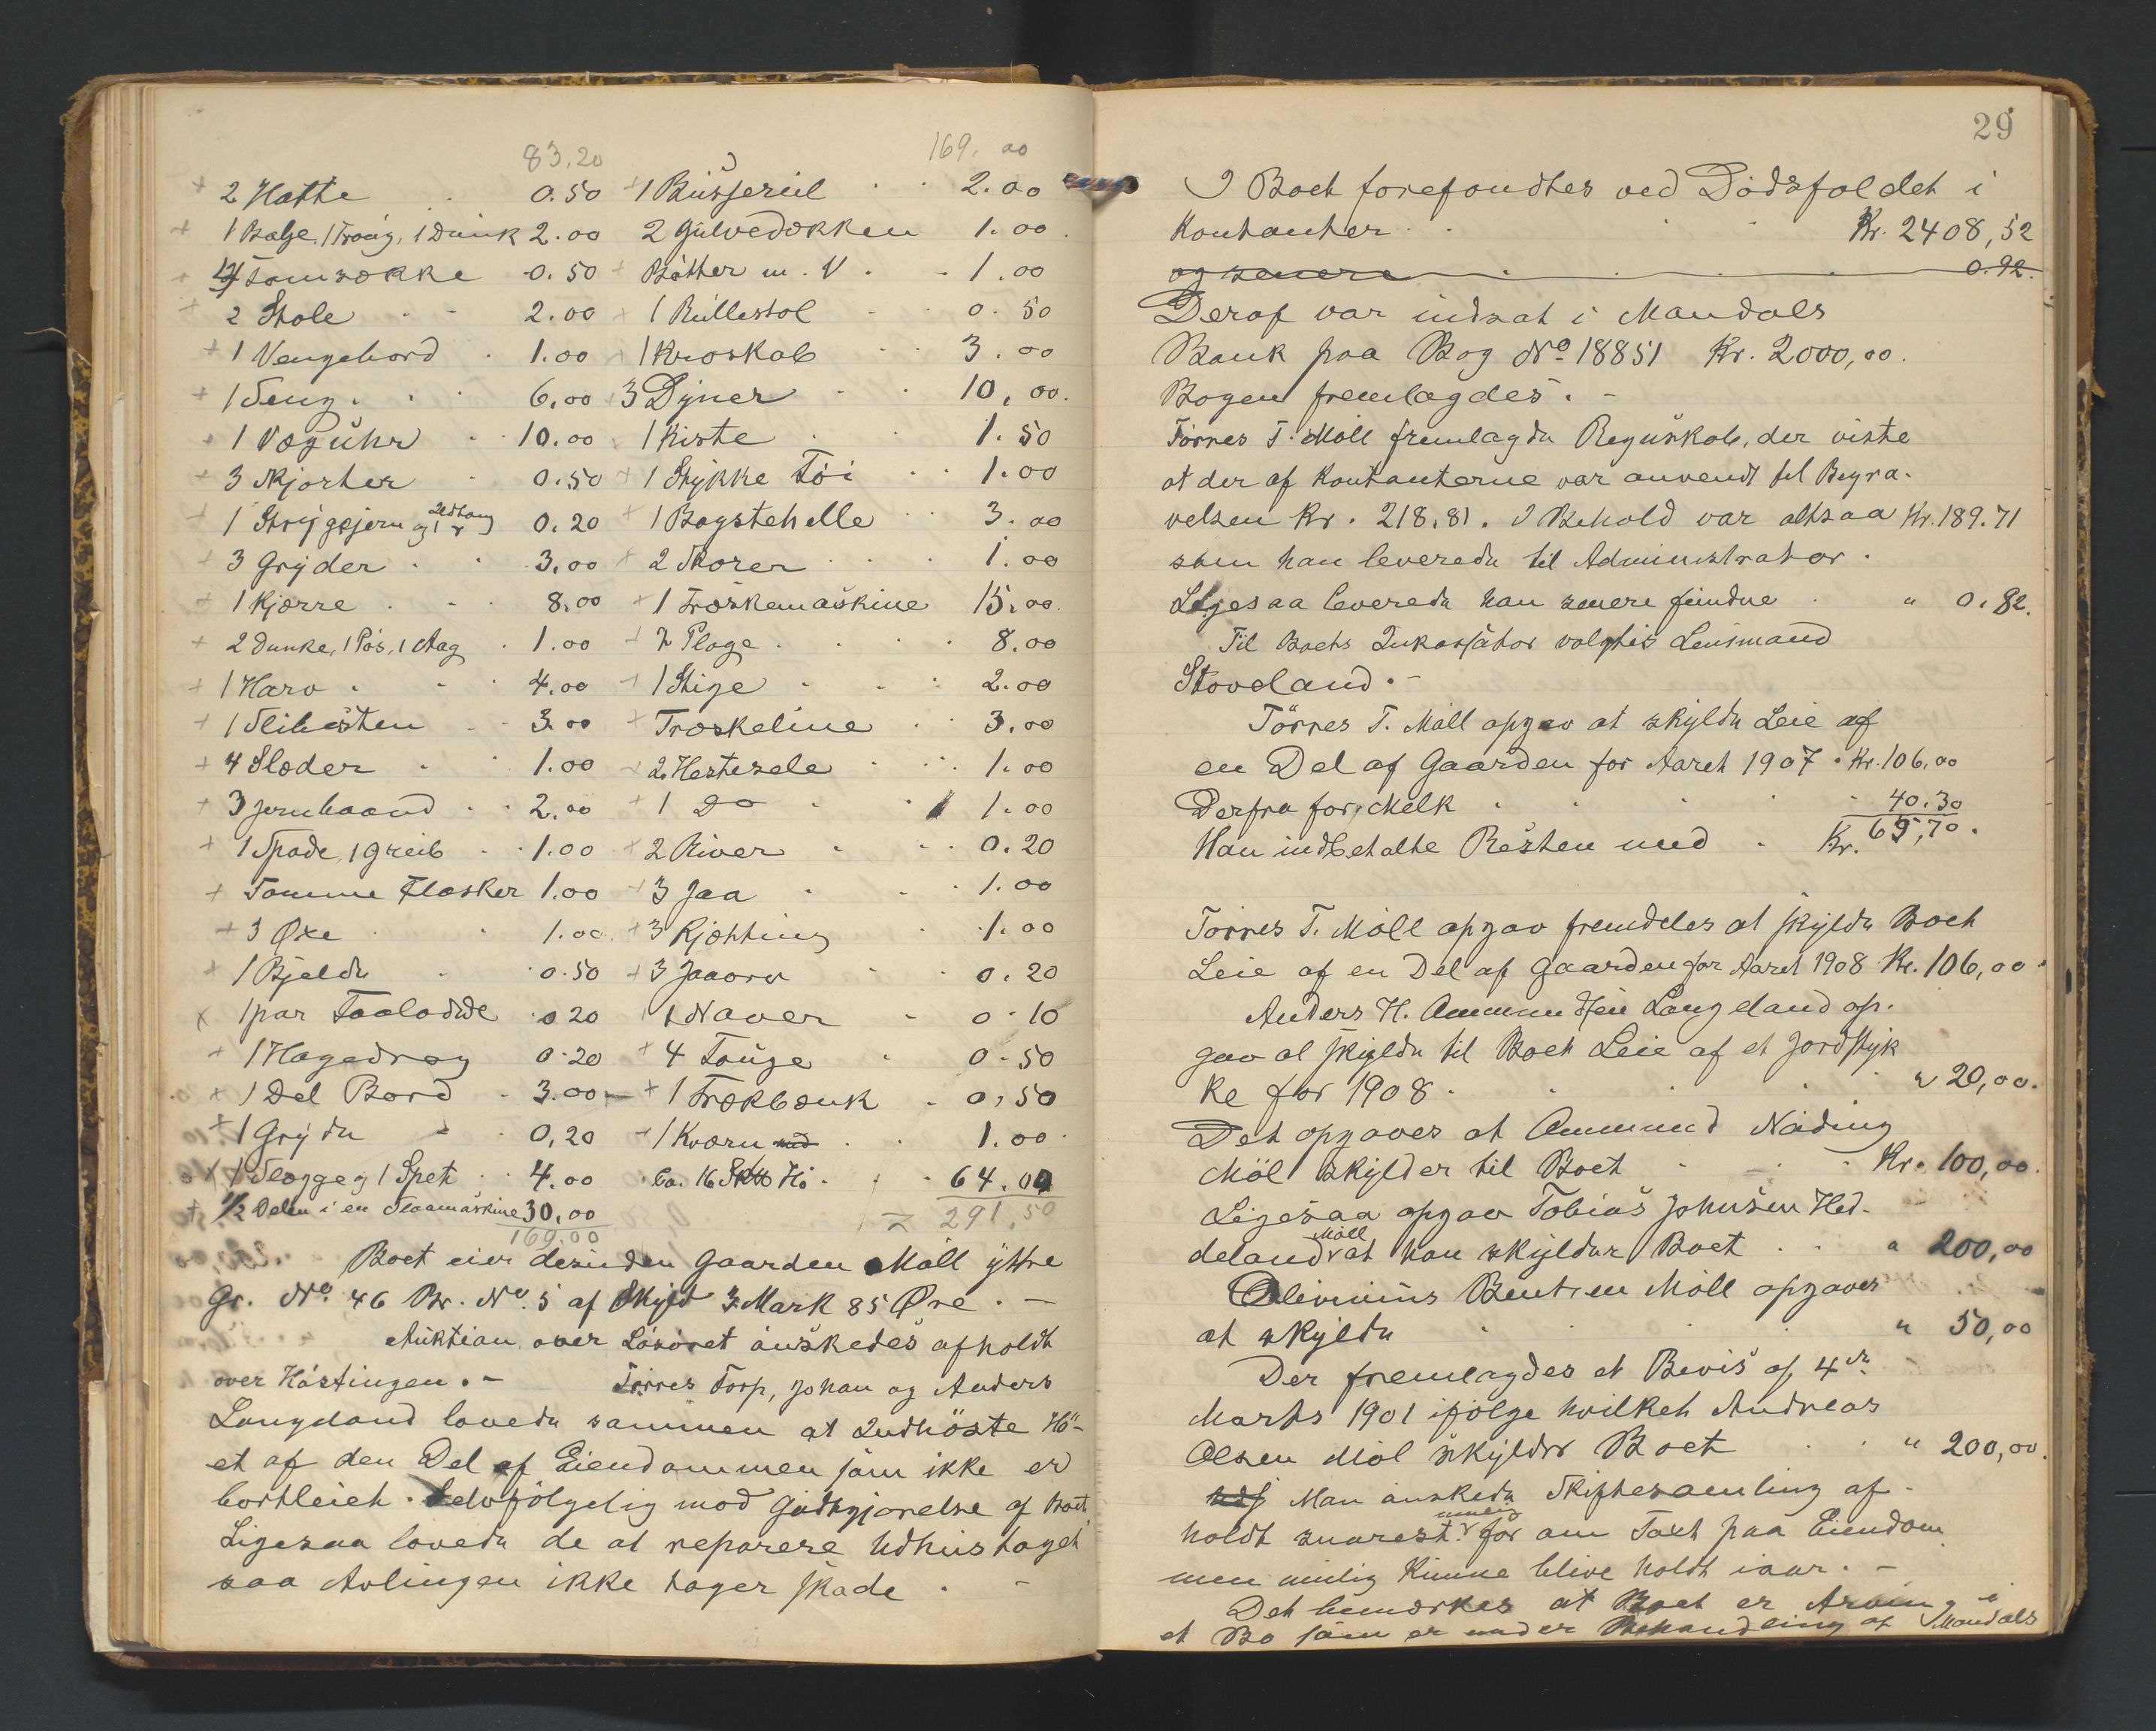 83.20
2 Hatte 0.50
1 Balje, 1 Traug, 1 Dunk 2.00
4 Tomsække 0.50
2 Stole 2.00
1 Vengebord 1.00
1 Seng 6,00
1 Væguhr 10.00
3 Skjorter 0.50
1 Strygejern og 1 0.20
3 Gryder 3.00
1 Kjærre 8.00
2 Dunke, 1 Pøs, 1 Aag 1.00
1 Harv 4.00
1 Slibesten 3.00
4 Slæder 1.00
3 Jernbaand 2.00
1 Spade, 1 Greib 1.00
Tomme Flasker 1.00
3 Øxe 1.00
1 Bjelde 0.50
1 par 0 20
1 Hagedrag 0.20
1 Del Bord 3.00
1 Gryde 0,20
1 Slægge og 1 Spet 4.00
1/2 Delen i en Slaamaskine 30,00
169.00
169. 00
1 2.00
2 Gulvedækken 1.00
Bøtter m. V. 1.00
1 Rullestol 0.50
1 Kroskab 3.00
3 Dyner 10,00.
1 Kiste 1.50
1 Stykke Tøi 1.00
1 Bagstehelle 3.00
2 1.00
1 Træskemaskine 15.00.
2 Ploge 8.00
1 Stige 2.00
Træskeline 3.00
2 Hestesele 1.00
1 Do 1.00
2 River 0.20
3 Jaa 1.00
3 Kjætting 1.00
3 Jaaorv 0.20
1 Naver 0.10
4 Tønge 0.50
1 Trækbænk 0,50
1 Kværn 1.00
Ca. 16 Hø 64.00
291.50
Boet eier desuden Gaarden Møll ytre
Gr. No. 46 Br. No. 5 af Skyld 3 Mark 85 Øre. -
Auktion over Løsøret ønskedes afholdt
over Høstingen. - Tørres Torp, Johan og Anders
Langeland lovede sammen at Indhøste Hø-
et af den Del af Eiendommen som ikke er
bortleiet. Selvfølgelig mod Godtgjørelse af Boet.
Ligesaa lovede de at reparere Udhustaget
saa Avlingen ikke tager skade. -
29
I Boet forefandtes ved Dødsfaldet i
Kontanter Kr. 2408,52
og senere 0.92.
Deraf var indsat i Mandals
Bank paa Bog No 18851 Kr. 2000,00.
Bogen fremlagdes. -
Tørres T. Møll fremlagde Regnskab, der viste
at der af Kontanterne var anvendt til Begra-
velsen Kr. 218.81. I Behold var altsaa Kr. 189.71
som han leverede til Administrator.
Ligesaa leverede han senere fundne " 0.82.
Til Boets Inkassator valgtes Lensmand
Stoveland. -
Tørres T. Møll opgav at skylde Leie af
en Del af Gaarden for Aaret 1907. Kr. 106,00
Derfra for Melk 40.30
Han indbetalte Resten med Kr. 65,70.
Tørres T. Møll opgav fremdeles at skylde Boet
Leie af en Del af Gaarden for Aaret 1908 Kr. 106,00
Anders H. Ammundsen Langeland op-
gav at skylde til Boet Leie af et Jordstyk
ke for 1908 " 20,00.
Det opgaves at Ammund Nøding
Møl skylder til Boet Kr. 100,00.
Ligesaa opgav Tobias Johnsen Hed-
deland Møll at han skylder Boet " 200,00
Oliminius Bentsen Møll opgaves
at skylde " 50,00
Der fremlagdes et Bevis af 4de
Marts 1901 ifølge hvilket Andreas
Olsen Møl skylder Boet " 200,00.
Man ønskede Skiftesamling af-
holdt snarest mulig for om Taxt paa Eiendom
men mulig kunne blive holdt iaar. -
Det bemærkes at Boet er Arving i
et Bo som er under Behandling af Mandals